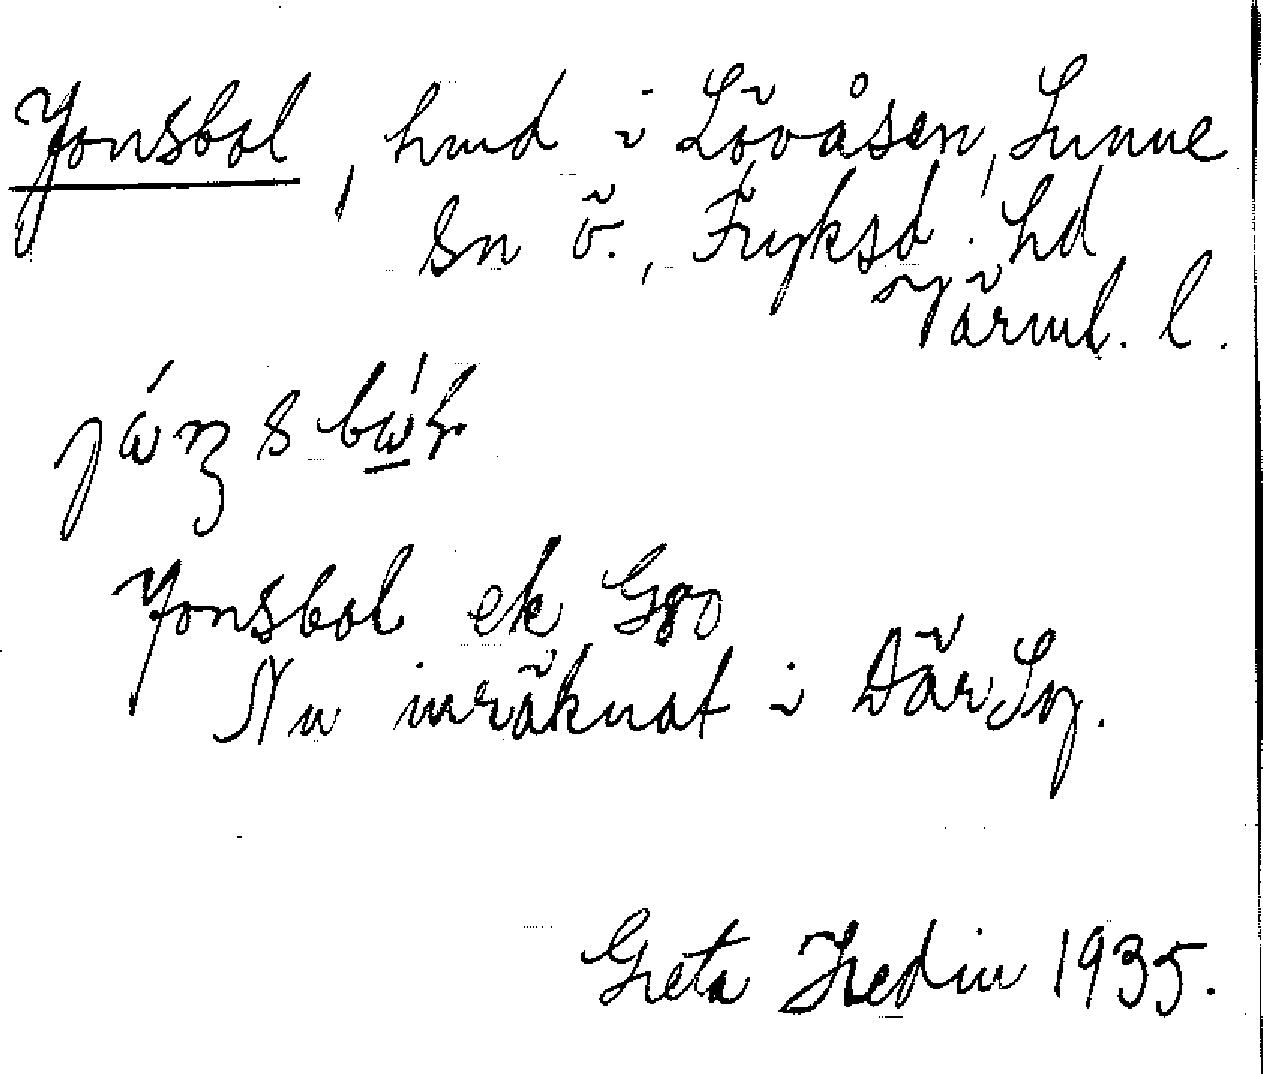 Jonsbol, hmd i Lövåsen, Sunne
sn ö., Fryksd. hd
Värml. l.
Jonsbol ek G80
Nu inräknat i
Greta Hedin 1935.